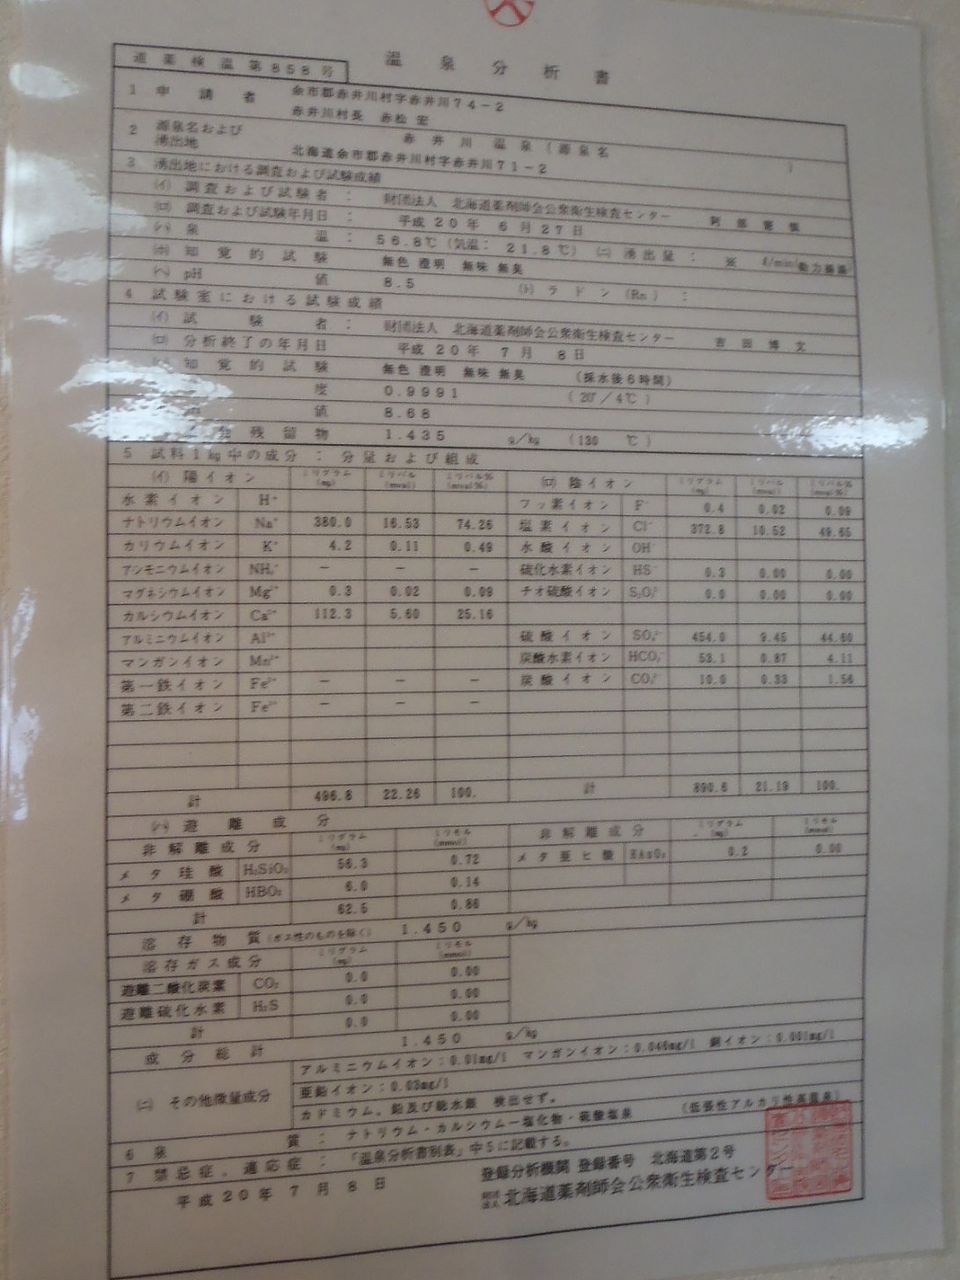 温泉分析書
道薬検温第858号
1 申請者 余市郡赤井川村字赤井川74-2
赤井川村長 赤松 宏
2 源泉名および湧出地 赤井川温泉(源泉名 )
北海道余市郡赤井川村字赤井川71-2
3 湧出地における調査および試験成績
(イ) 調査および試験者: 財団法人 北海道薬剤師会公衆衛生検査センター
(ロ) 調査および試験年月日: 平成20年 6月27日
(ハ) 泉温: 56.8℃(気温: 21.8℃) (ニ) 湧出量: ※ ℓ/min 動力揚湯
(ホ) 知覚的試験 無色 澄明 無味 無臭
(ヘ) pH値 8.5 (ト) ラドン(Rn):
4 試験室における試験成績
(イ) 試験者: 財団法人 北海道薬剤師会公衆衛生検査センター 吉田博文
(ロ) 分析終了の年月日 平成20年 7月 8日
知覚的試験 無色 澄明 無味 無臭 (採水後6時間)
度 0.9991 (20°/4℃)
値 8.68
残留物 1.435 g/kg (130 ℃)
5 試料1kg中の成分: 分量および組成
(イ) 陽イオン ミリグラム(mg) ミリバル(mval) ミリバル%(mval%) (ロ) 陰イオン ミリグラム(mg) ミリバル(mval) ミリバル%(mval%)
水素イオン H⁺ フッ素イオン F⁻ 0.4 0.02 0.09
ナトリウムイオン Na⁺ 380.0 16.53 74.26 塩素イオン Cl⁻ 372.8 10.52 49.65
カリウムイオン K⁺ 4.2 0.11 0.49 水酸イオン OH⁻
アンモニウムイオン NH₄⁺ − − − 硫化水素イオン HS⁻ 0.3 0.00 0.00
マグネシウムイオン Mg²⁺ 0.3 0.02 0.09 チオ硫酸イオン S₂O₃²⁻ 0.0 0.00 0.00
カルシウムイオン Ca²⁺ 112.3 5.60 25.16
アルミニウムイオン Al³⁺ 硫酸イオン SO₄²⁻ 454.0 9.45 44.60
マンガンイオン Mn²⁺ 炭酸水素イオン HCO₃⁻ 53.1 0.87 4.11
第一鉄イオン Fe²⁺ − − − 炭酸イオン CO₃²⁻ 10.0 0.33 1.56
第二鉄イオン Fe³⁺ − − −
計 496.8 22.26 100. 計 890.6 21.19 100.
(ハ) 遊離成分
非解離成分 ミリグラム(mg) ミリモル(mmol) 非解離成分 ミリグラム(mg) ミリモル(mmol)
メタ珪酸 H₂SiO₃ 56.3 0.72 メタ亜ヒ酸 HAsO₂ 0.2 0.00
メタ硼酸 HBO₂ 6.0 0.14
計 62.5 0.86
溶存物質(ガス性のものを除く) 1.450 g/kg
溶存ガス成分 ミリグラム(mg) ミリモル(mmol)
遊離二酸化炭素 CO₂ 0.0 0.00
遊離硫化水素 H₂S 0.0 0.00
計 0.0 0.00
成分総計 1.450 g/kg
(ニ) その他微量成分 アルミニウムイオン:0.01mg/l マンガンイオン:0.046mg/l 銅イオン:0.001mg/l
亜鉛イオン:0.03mg/l
カドミウム、鉛及び総水銀 検出せず。
6 泉質: ナトリウム・カルシウム−塩化物・硫酸塩泉 (低張性アルカリ性高温泉)
7 禁忌症、適応症: 「温泉分析書別表」中5に記載する。
平成20年 7月 8日
登録分析機関 登録番号 北海道第2号
財団法人 北海道薬剤師会公衆衛生検査センター